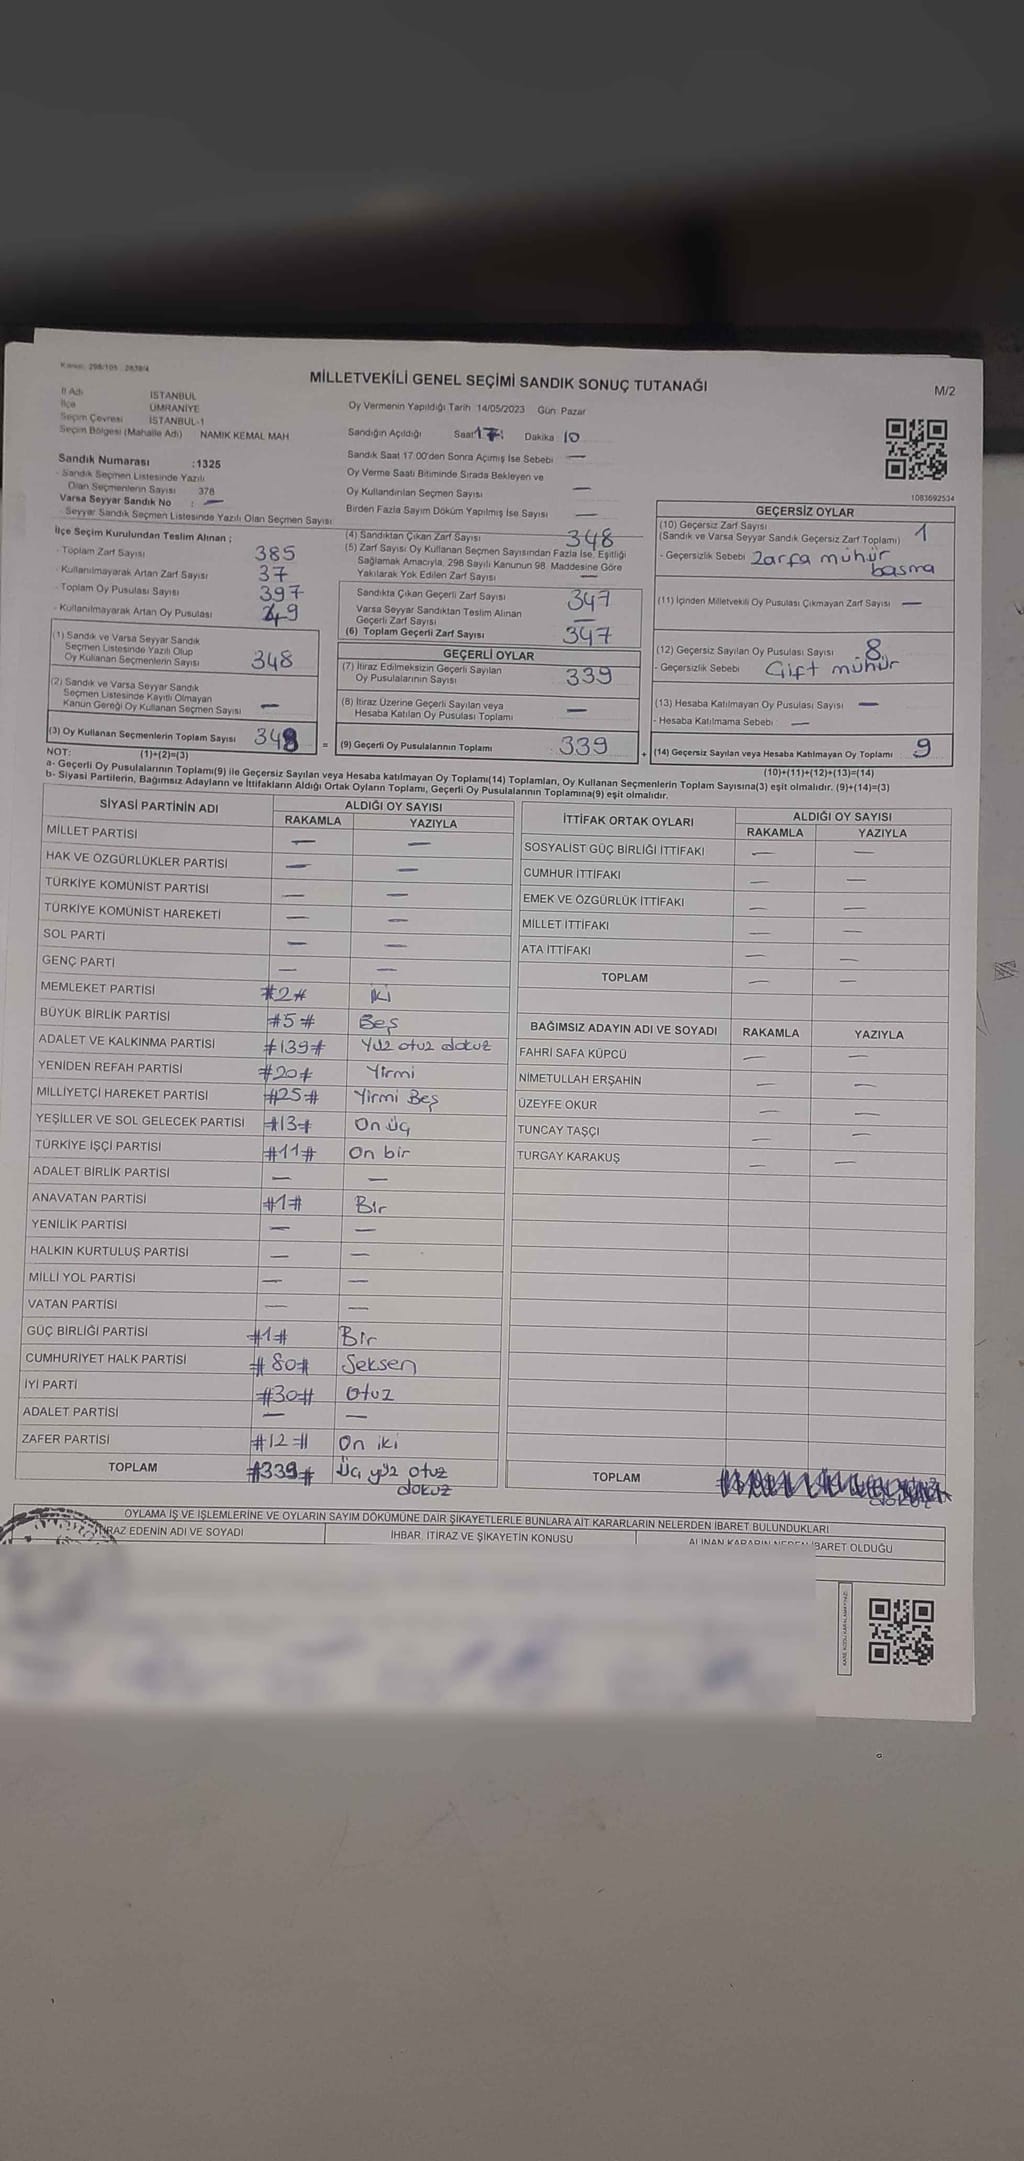 Kanun: 298/105 - 2839/4
MİLLETVEKİLİ GENEL SEÇİMİ SANDIK SONUÇ TUTANAĞI
M/2
İl Adı İSTANBUL
İlçe ÜMRANİYE
Seçim Çevresi İSTANBUL-1
Seçim Bölgesi (Mahalle Adı) NAMIK KEMAL MAH
Sandık Numarası :1325
- Sandık Seçmen Listesinde Yazılı
Olan Seçmenlerin Sayısı 378
Varsa Seyyar Sandık No : —
- Seyyar Sandık Seçmen Listesinde Yazılı Olan Seçmen Sayısı
Oy Vermenin Yapıldığı Tarih 14/05/2023 Gün: Pazar
Sandığın Açıldığı Saat 17 Dakika 10
Sandık Saat 17.00'den Sonra Açılmış İse Sebebi —
Oy Verme Saati Bitiminde Sırada Bekleyen ve
Oy Kullandırılan Seçmen Sayısı —
Birden Fazla Sayım Döküm Yapılmış İse Sayısı —
1083692534
İlçe Seçim Kurulundan Teslim Alınan ;
- Toplam Zarf Sayısı 385
- Kullanılmayarak Artan Zarf Sayısı 37
- Toplam Oy Pusulası Sayısı 397
- Kullanılmayarak Artan Oy Pusulası 49
(1) Sandık ve Varsa Seyyar Sandık
Seçmen Listesinde Yazılı Olup
Oy Kullanan Seçmenlerin Sayısı 348
(2) Sandık ve Varsa Seyyar Sandık
Seçmen Listesinde Kayıtlı Olmayan
Kanun Gereği Oy Kullanan Seçmen Sayısı —
(3) Oy Kullanan Seçmenlerin Toplam Sayısı 348
(1)+(2)=(3)
(4) Sandıktan Çıkan Zarf Sayısı 348
(5) Zarf Sayısı Oy Kullanan Seçmen Sayısından Fazla İse, Eşitliği
Sağlamak Amacıyla, 298 Sayılı Kanunun 98. Maddesine Göre
Yakılarak Yok Edilen Zarf Sayısı —
Sandıkta Çıkan Geçerli Zarf Sayısı 347
Varsa Seyyar Sandıktan Teslim Alınan
Geçerli Zarf Sayısı —
(6) Toplam Geçerli Zarf Sayısı 347
GEÇERLİ OYLAR
(7) İtiraz Edilmeksizin Geçerli Sayılan
Oy Pusulalarının Sayısı 339
(8) İtiraz Üzerine Geçerli Sayılan veya
Hesaba Katılan Oy Pusulası Toplamı —
= (9) Geçerli Oy Pusulalarının Toplamı 339
GEÇERSİZ OYLAR
(10) Geçersiz Zarf Sayısı
(Sandık ve Varsa Seyyar Sandık Geçersiz Zarf Toplamı) 1
- Geçersizlik Sebebi Zarfa mühür
basma
(11) İçinden Milletvekili Oy Pusulası Çıkmayan Zarf Sayısı —
(12) Geçersiz Sayılan Oy Pusulası Sayısı 8
- Geçersizlik Sebebi Çift mühür
(13) Hesaba Katılmayan Oy Pusulası Sayısı —
- Hesaba Katılmama Sebebi —
+ (14) Geçersiz Sayılan veya Hesaba Katılmayan Oy Toplamı 9
(10)+(11)+(12)+(13)=(14)
NOT:
a- Geçerli Oy Pusulalarının Toplamı(9) ile Geçersiz Sayılan veya Hesaba katılmayan Oy Toplamı(14) Toplamları, Oy Kullanan Seçmenlerin Toplam Sayısına(3) eşit olmalıdır. (9)+(14)=(3)
b- Siyasi Partilerin, Bağımsız Adayların ve İttifakların Aldığı Ortak Oyların Toplamı, Geçerli Oy Pusulalarının Toplamına(9) eşit olmalıdır.
SİYASİ PARTİNİN ADI ALDIĞI OY SAYISI
RAKAMLA YAZIYLA
MİLLET PARTİSİ — —
HAK VE ÖZGÜRLÜKLER PARTİSİ — —
TÜRKİYE KOMÜNİST PARTİSİ — —
TÜRKİYE KOMÜNİST HAREKETİ — —
SOL PARTİ — —
GENÇ PARTİ — —
MEMLEKET PARTİSİ #2# iki
BÜYÜK BİRLİK PARTİSİ #5# Beş
ADALET VE KALKINMA PARTİSİ #139# Yüz otuz dokuz
YENİDEN REFAH PARTİSİ #20# Yirmi
MİLLİYETÇİ HAREKET PARTİSİ #25# Yirmi Beş
YEŞİLLER VE SOL GELECEK PARTİSİ #13# On üç
TÜRKİYE İŞÇİ PARTİSİ #11# On bir
ADALET BİRLİK PARTİSİ — —
ANAVATAN PARTİSİ #1# Bir
YENİLİK PARTİSİ — —
HALKIN KURTULUŞ PARTİSİ — —
MİLLİ YOL PARTİSİ — —
VATAN PARTİSİ — —
GÜÇ BİRLİĞİ PARTİSİ #1# Bir
CUMHURİYET HALK PARTİSİ #80# Seksen
İYİ PARTİ #30# Otuz
ADALET PARTİSİ — —
ZAFER PARTİSİ #12# On iki
TOPLAM #339# Üç yüz otuz
dokuz
İTTİFAK ORTAK OYLARI ALDIĞI OY SAYISI
RAKAMLA YAZIYLA
SOSYALİST GÜÇ BİRLİĞİ İTTİFAKI — —
CUMHUR İTTİFAKI — —
EMEK VE ÖZGÜRLÜK İTTİFAKI — —
MİLLET İTTİFAKI — —
ATA İTTİFAKI — —
TOPLAM — —
BAĞIMSIZ ADAYIN ADI VE SOYADI RAKAMLA YAZIYLA
FAHRİ SAFA KÜPCÜ — —
NİMETULLAH ERŞAHİN — —
ÜZEYFE OKUR — —
TUNCAY TAŞÇI — —
TURGAY KARAKUŞ — —
TOPLAM
OYLAMA İŞ VE İŞLEMLERİNE VE OYLARIN SAYIM DÖKÜMÜNE DAİR ŞİKAYETLERLE BUNLARA AİT KARARLARIN NELERDEN İBARET BULUNDUKLARI
İTİRAZ EDENİN ADI VE SOYADI İHBAR, İTİRAZ VE ŞİKAYETİN KONUSU ALINAN KARARIN NEDEN İBARET OLDUĞU